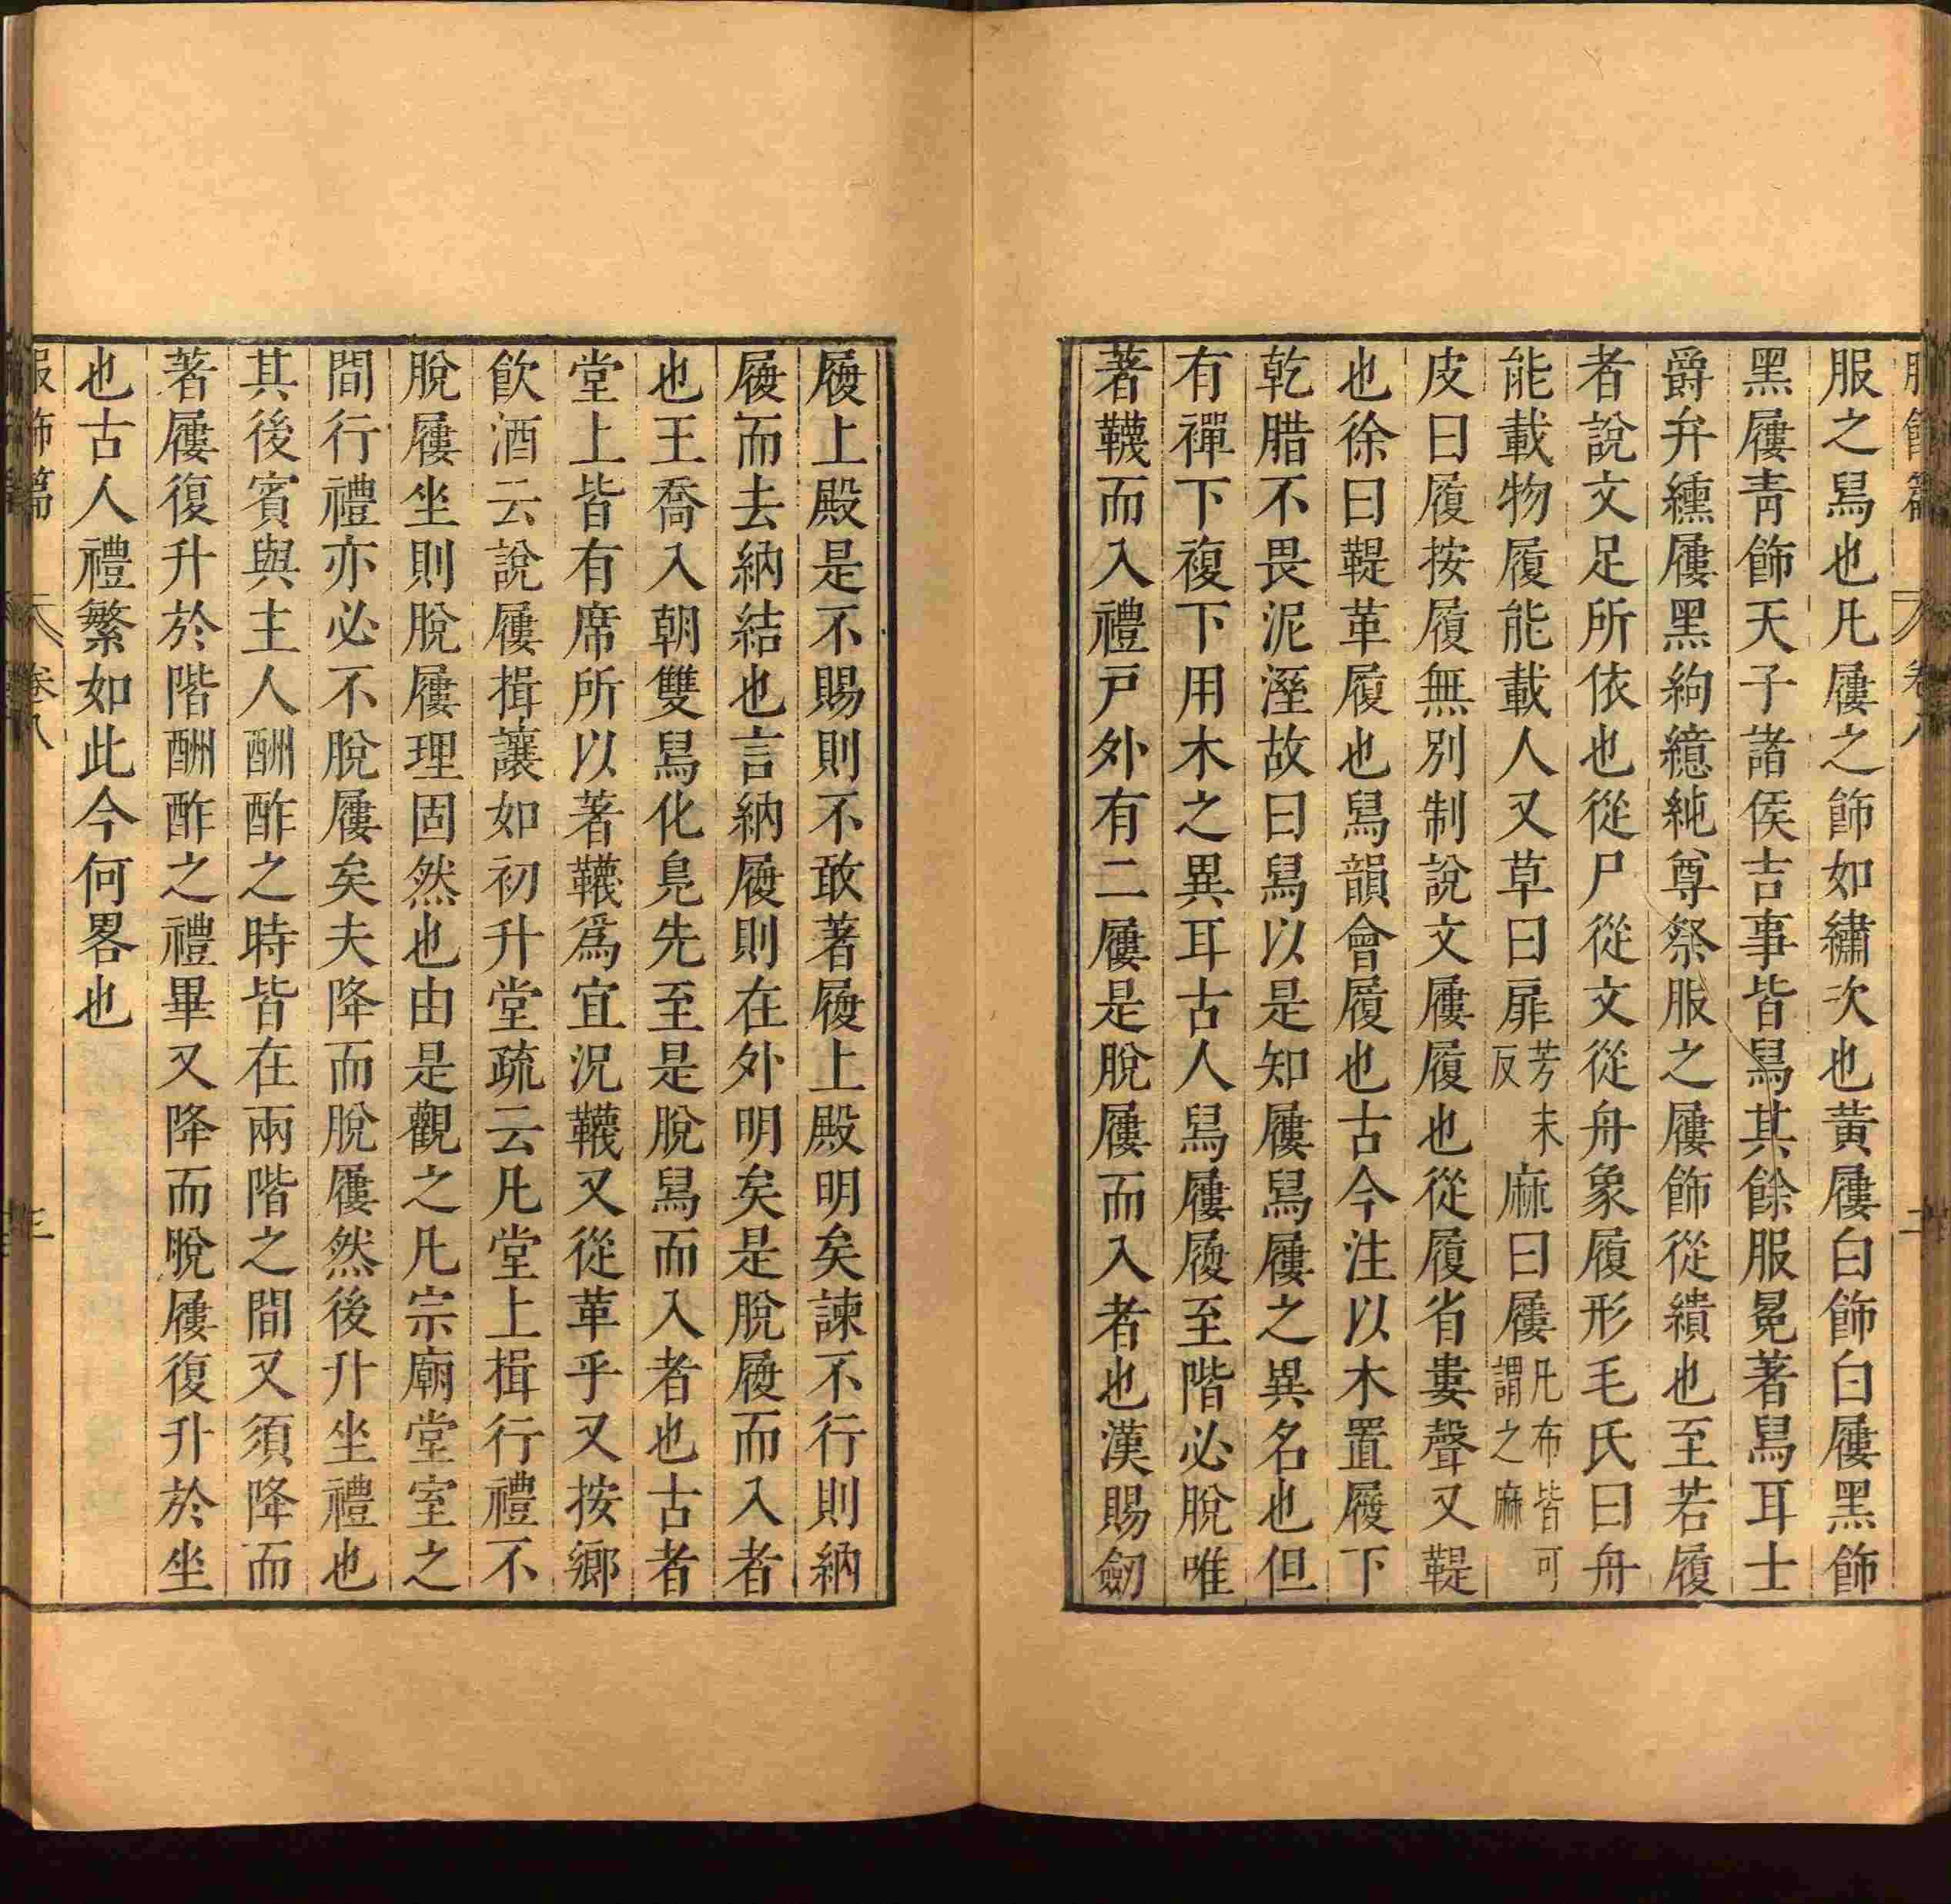 服飾篇 卷八 二
服之舄也凡屨之飾如繡次也黃屨白飾白屨黑飾
黑屨靑飾天子諸侯吉事皆舄其餘服冕著舄耳士
爵弁纁屨黑絇繶純尊祭服之屨飾從繢也至若履
者說文足所依也從尸從文從舟象履形毛氏曰舟
能載物履能載人又草曰屝芳未反麻曰屨凡布皆可謂之麻
皮曰履按履無別制說文屨履也從履省婁聲又鞮
也徐曰鞮革履也舄韻會履也古今注以木置履下
乾腊不畏泥溼故曰舄以是知屨舄屨之異名也但
有襌下複下用木之異耳古人舄屨履至階必脫唯
著韈而入禮戸外有二屨是脫屨而入者也漢賜劒
履上殿是不賜則不敢著履上殿明矣諫不行則納
履而去納結也言納履則在外明矣是脫履而入者
也王喬入朝雙舄化鳧先至是脫舄而入者也古者
堂上皆有席所以著韈爲宜況韈又從革乎又按鄉
飮酒云說屨揖讓如初升堂疏云凡堂上揖行禮不
脫屨坐則脫屨理固然也由是觀之凡宗廟堂室之
間行禮亦必不脫屨矣夫降而脫屨然後升坐禮也
其後賓與主人酬酢之時皆在兩階之間又須降而
著屨復升於階酬酢之禮畢又降而脫屨復升於坐
也古人禮繁如此今何畧也
服飾篇 卷八 三